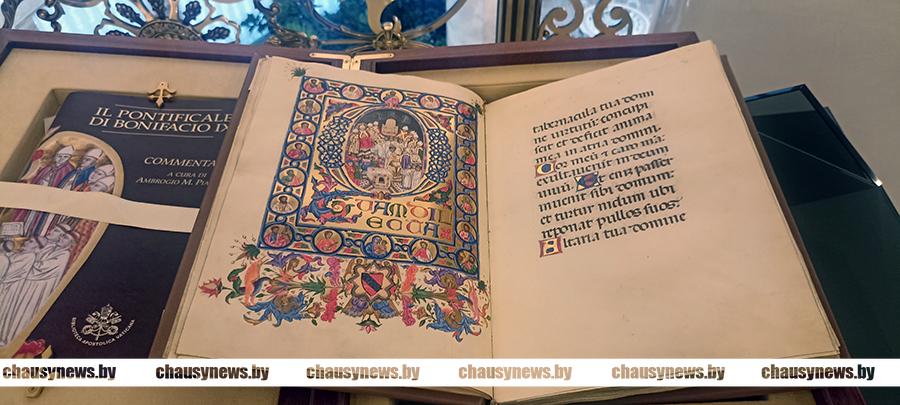 IL PONTIFICALE
DI BONIFACIO IX
COMMENTA
A CURA DI
AMBROGIO M. PIA
BIBLIOTECA APOSTOLICA VATICANA
QVAM DIL
ECTA
tabernacula tua domi
ne uirtutū: concupi
scit et deficit anima
atria domini.
Cor meū & caro mea
in deum
uiuū. Et enī passer
inuenit sibi domum:
et turtur nidum ubi
reponat pullos suos.
Altaria tua domine
chausynews.by chausynews.by chausynews.by chausynews.by chausynews.by chausynews.by